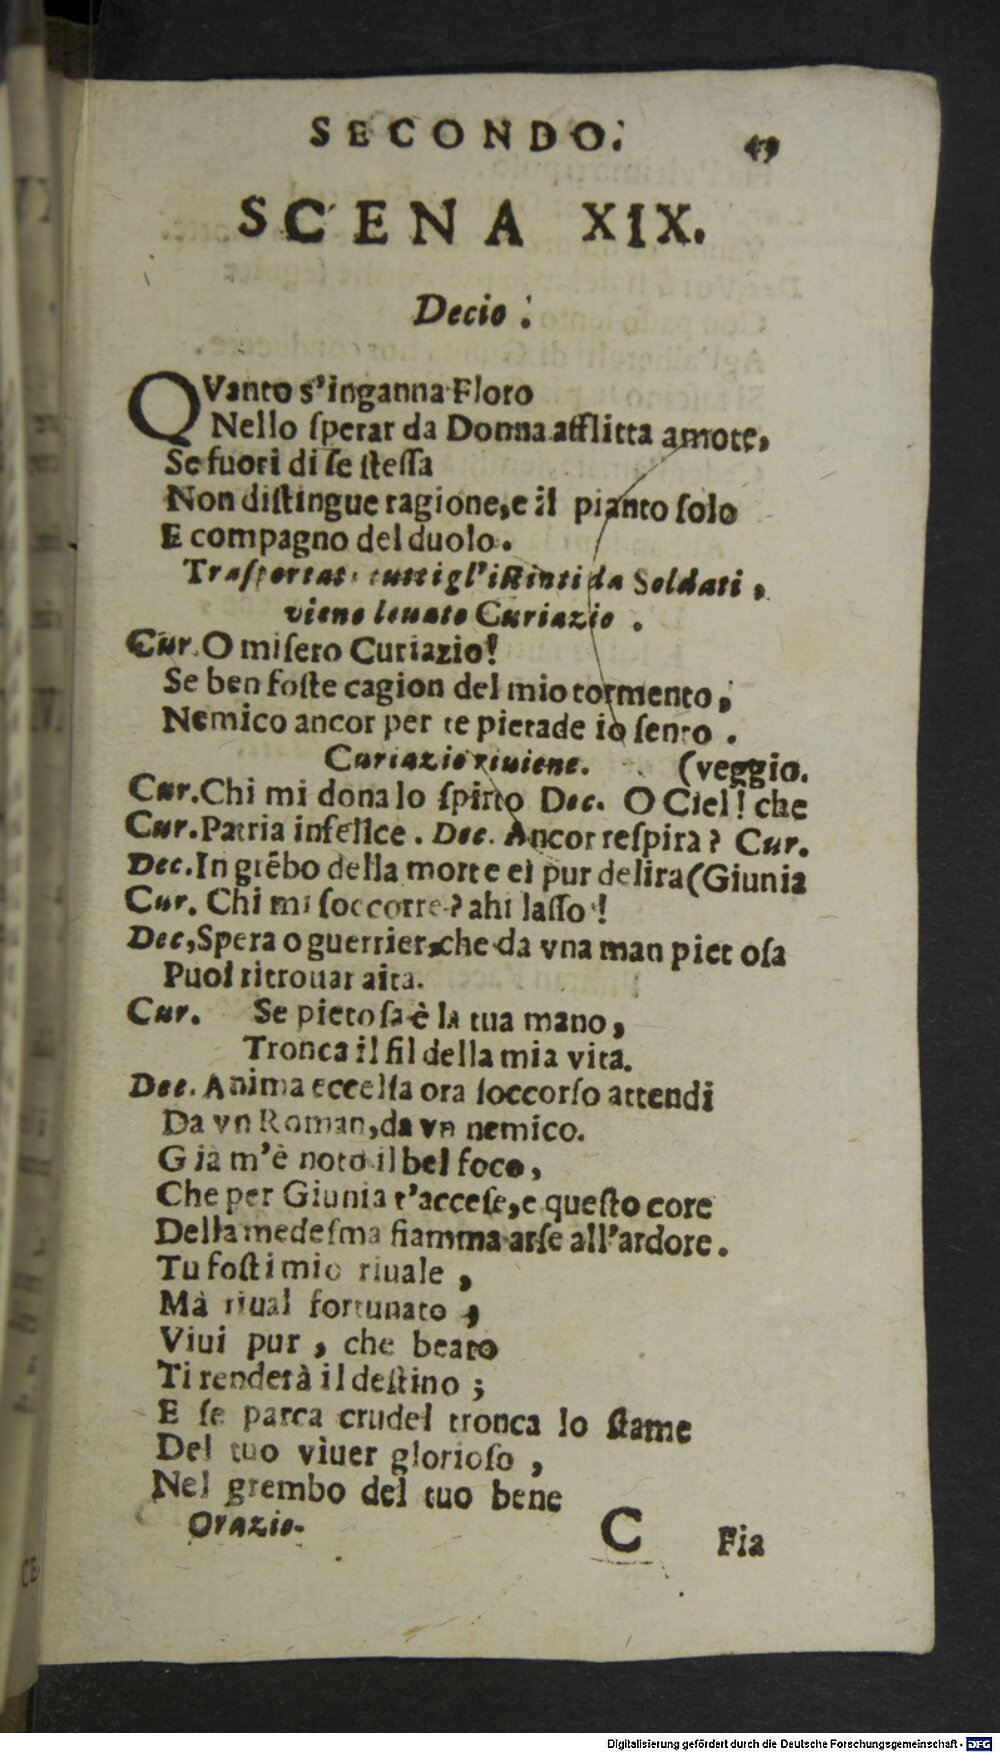 SECONDO. 49
SCENA XIX.
Decio.
QVanto s'inganna Floro
Nello ſperar da Donna afflitta amore,
Se fuori di ſe ſteſſa
Non diſtingue ragione, e il pianto ſolo
E compagno del duolo.
Traſportati tutti gl'iſtinti da Soldati,
viene leuato Curiazio.
Cur. O miſero Curiazio!
Se ben foſte cagion del mio tormento,
Nemico ancor per te pietade io ſento.
Curiazio riuiene. (veggio.
Cur. Chi mi dona lo ſpirto Dec. O Ciel! che
Cur. Patria infelice. Dec. Ancor reſpira? Cur.
Dec. In grẽbo della morte ei pur delira (Giunia
Cur. Chi mi ſoccorre? ahi laſſo!
Dec, Spera o guerrier, che da vna man pietoſa
Puoi ritrouar aita.
Cur. Se pietoſa è la tua mano,
Tronca il fil della mia vita.
Dec. Anima eccelſa ora ſoccorſo attendi
Da vn Roman, da vn nemico.
Già m'è noto il bel foco,
Che per Giunia t'acceſe, e queſto core
Della medeſma fiamma arſe all'ardore.
Tu foſti mio riuale,
Mà riual fortunato,
Viui pur, che beato
Ti renderà il deſtino;
E ſe parca crudel tronca lo ſtame
Del tuo viuer glorioſo,
Nel grembo del tuo bene
Orazio. C Fia
Digitalisierung gefördert durch die Deutsche Forschungsgemeinschaft - DFG